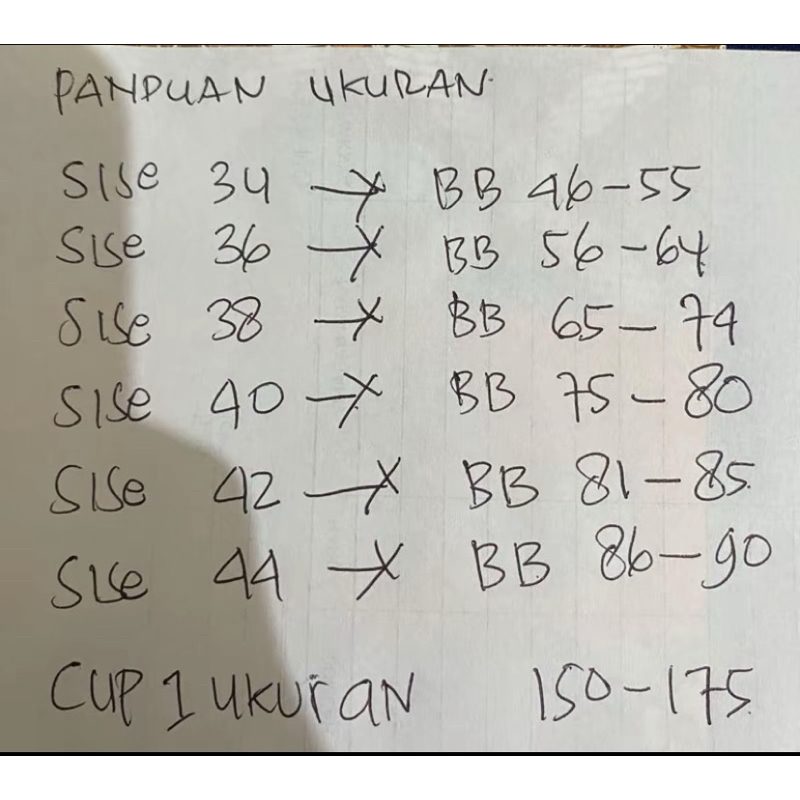 PANDUAN UKURAN.
SISe 34 → BB 46-55
SISe 36 → BB 56-64
SISe 38 → BB 65-74
SISe 40 → BB 75-80
SISe 42 → BB 81-85
SISe 44 → BB 86-90
CUP 1 UKURAN 150-175